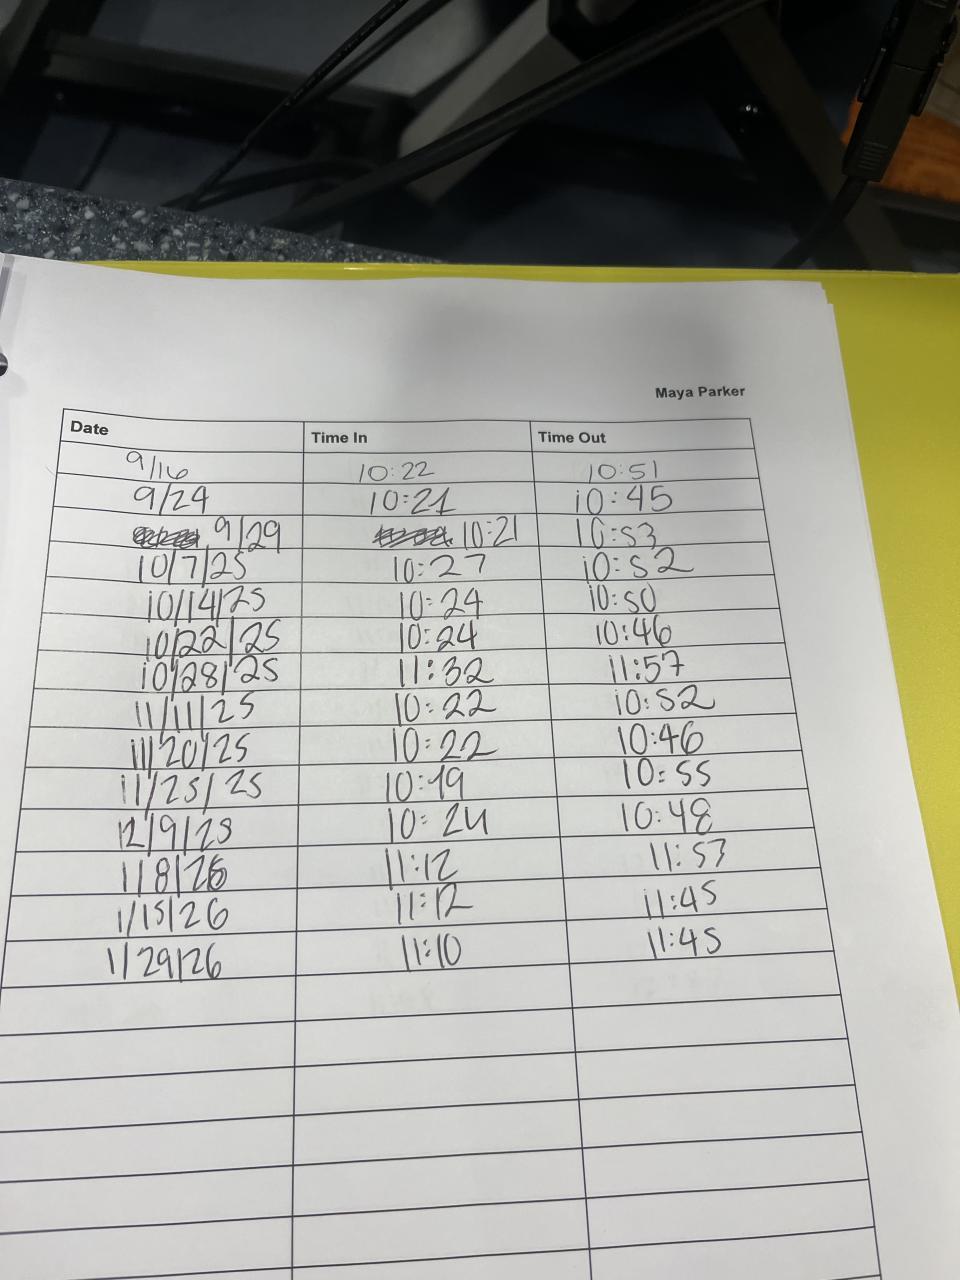 Maya Parker
Date Time In Time Out
9/16 10:22 10:51
9/24 10:21 10:45
9/29 10:21 10:53
10/7/25 10:27 10:52
10/14/25 10:24 10:50
10/22/25 10:24 10:46
10/28/25 11:32 11:57
11/11/25 10:22 10:52
11/20/25 10:22 10:46
11/25/25 10:19 10:55
12/9/25 10:24 10:48
1/8/26 11:12 11:53
1/15/26 11:12 11:45
1/29/26 11:10 11:45